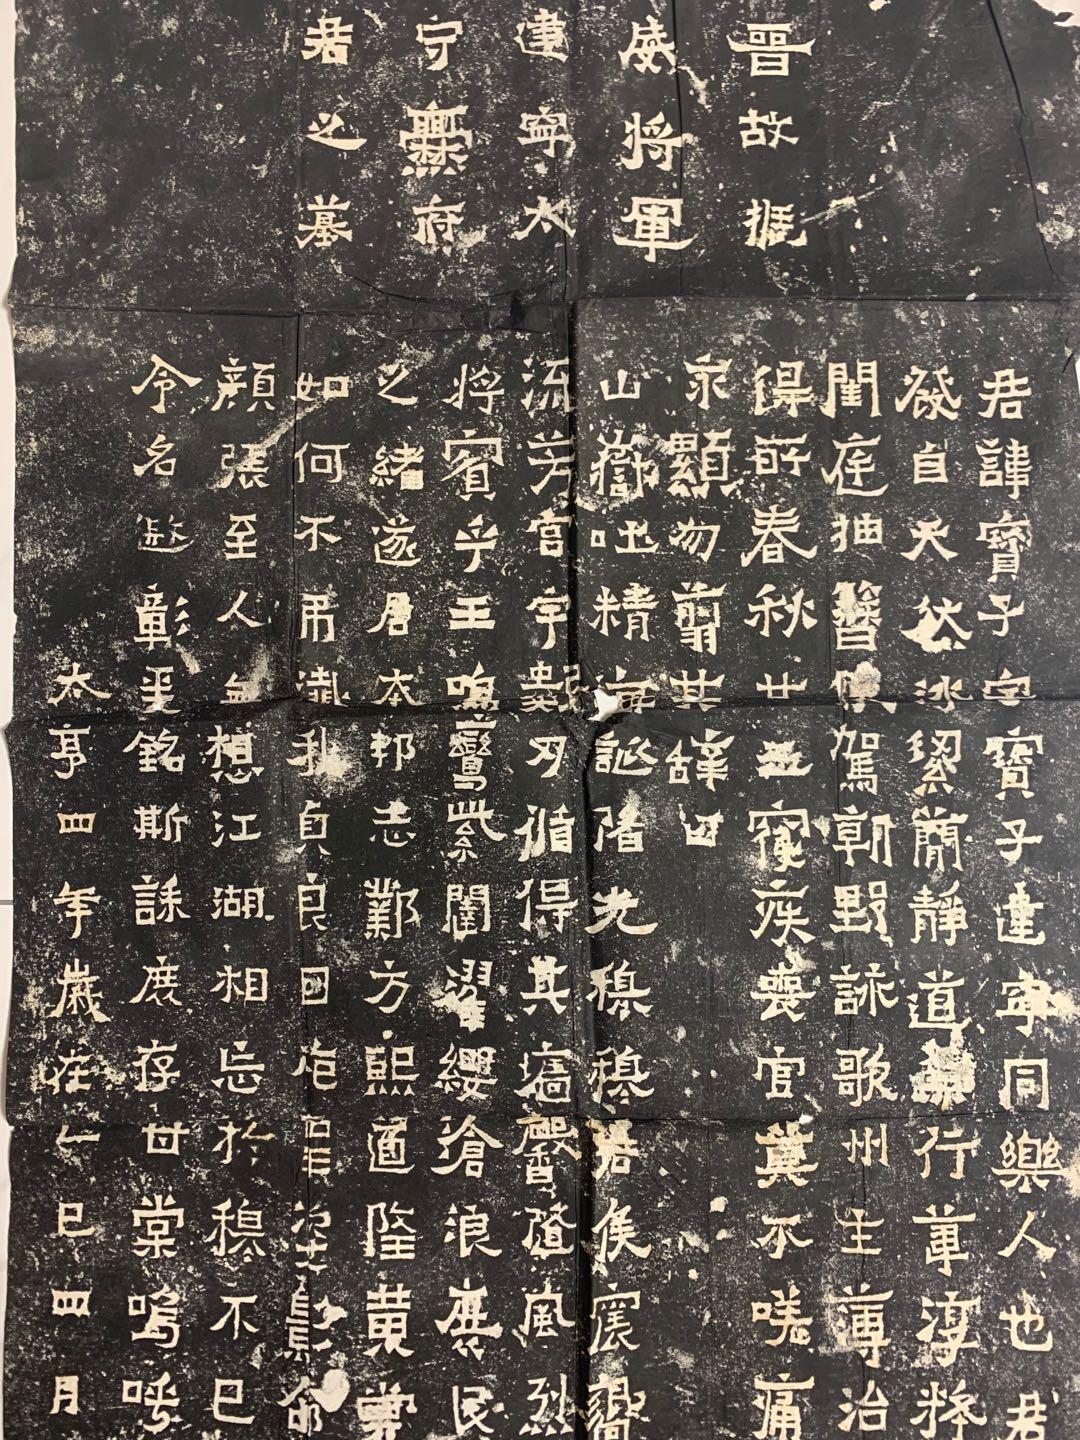 晋故振
威将軍
建寧太
守爨府
君之墓
君諱寶子字寶子建寧同樂人也君
發自天然冰絜簡静道兼行葦淳粹
閨庭抽簪俟駕朝野詠歌州主薄治
得所春秋廿五寝疾喪官莫不嗟痛
永顯勿翦其辭曰
山嶽吐精海誕陼光穆穆君侯震嚮
流芳宫宇數仞循得其墙馨隨風烈
将賓乎王鳴鸞紫闥濯纓滄浪庶民
之緒遂居本邦志鄴方熙道隆黄裳
如何不弔殲我貞良回抱聖姿影命
顔張至人無想江湖相忘於穆不已
令名遐彰爰銘斯誄庶存甘棠嗚呼
太亨四年歲在乙巳四月